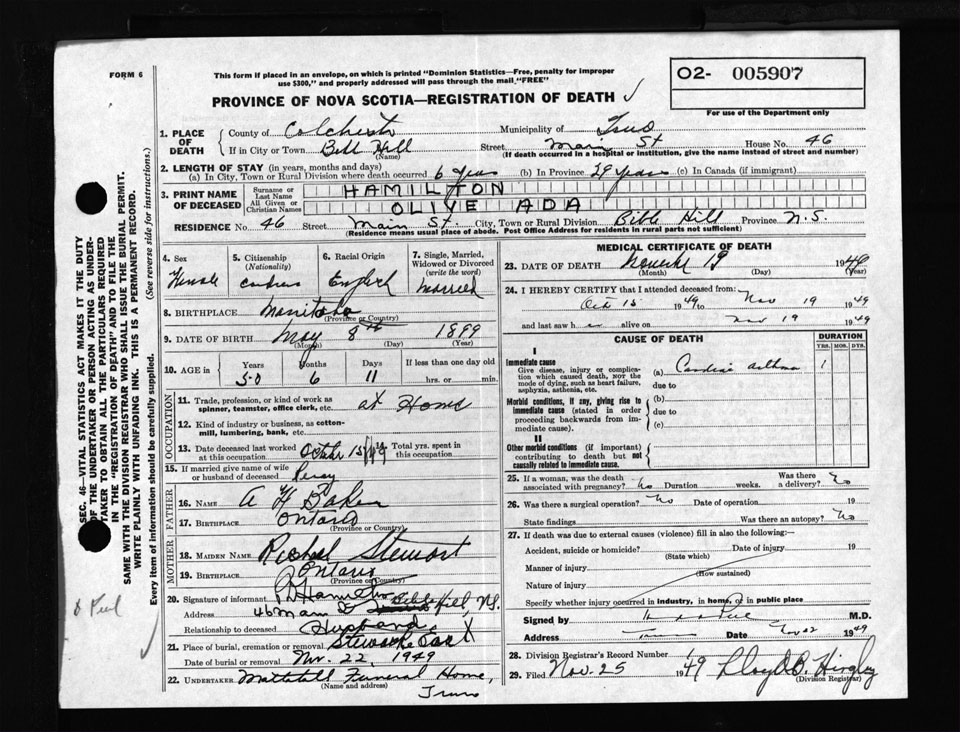 FORM 6
This form if placed in an envelope, on which is printed "Dominion Statistics—Free, penalty for improper
use $300," and properly addressed will pass through the mail "FREE"
O2- 005907
For use of the Department only
PROVINCE OF NOVA SCOTIA—REGISTRATION OF DEATH
1. PLACE OF DEATH
County of Colchester Municipality of Truro
If in City or Town Bible Hill (Name) Street Main St House No. 46
(If death occurred in a hospital or institution, give the name instead of street and number)
2. LENGTH OF STAY (in years, months and days)
(a) In City, Town or Rural Division where death occurred 6 years (b) In Province 29 years (c) In Canada (if immigrant)
3. PRINT NAME OF DECEASED
Surname or Last Name HAMILTON
All Given or Christian Names OLIVE ADA
RESIDENCE No. 46 Street Main St. City, Town or Rural Division Bible Hill Province N.S.
(Residence means usual place of abode. Post Office Address for residents in rural parts not sufficient)
4. Sex Female
5. Citizenship (Nationality)
6. Racial Origin English
7. Single, Married, Widowed or Divorced (write the word) Married
8. BIRTHPLACE Manitoba
(Province or Country)
9. DATE OF BIRTH May 8th 1899
(Month) (Day) (Year)
10. AGE in Years 50 Months 6 Days 11 If less than one day old
hrs. or min.
OCCUPATION
11. Trade, profession, or kind of work as
spinner, teamster, office clerk, etc. at Home
12. Kind of industry or business, as cotton-
mill, lumbering, bank, etc.
13. Date deceased last worked at this occupation October 15/1949 Total yrs. spent in this occupation
15. If married give name of wife
or husband of deceased Percy
FATHER
16. NAME A W Baker
17. BIRTHPLACE Ontario
(Province or Country)
MOTHER
18. MAIDEN NAME Rachel Stewart
19. BIRTHPLACE Ontario
(Province or Country)
20. Signature of informant P D Hamilton
Address 46 Main St Bible Hill, N.S.
Relationship to deceased Husband
21. Place of burial, cremation or removal
Date of burial or removal Nov. 22, 1949
22. UNDERTAKER Mattatall Funeral Home,
(Name and address) Truro
MEDICAL CERTIFICATE OF DEATH
23. DATE OF DEATH November 19 1949
(Month) (Day) (Year)
24. I HEREBY CERTIFY that I attended deceased from:
Oct 15 1949 to Nov 19 1949
and last saw h er alive on Nov 19 1949
CAUSE OF DEATH
DURATION
YRS. MOS. DYS.
I
Immediate cause
Give disease, injury or complica-
tion which caused death, not the
mode of dying, such as heart failure,
asphyxia, asthenia, etc.
(a) Cardiac asthma 1
due to
Morbid conditions, if any, giving rise to
immediate cause (stated in order
proceeding backwards from im-
mediate cause).
(b)
due to
(c)
II
Other morbid conditions (if important)
contributing to death but not
causally related to immediate cause.
25. If a woman, was the death
associated with pregnancy? No Duration weeks. Was there
a delivery? No
26. Was there a surgical operation? No Date of operation 19
State findings Was there an autopsy? No
27. If death was due to external causes (violence) fill in also the following:
Accident, suicide or homicide? Date of injury 19
(State which)
Manner of injury
(How sustained)
Nature of injury
Specify whether injury occurred in industry, in home, or in public place
Signed by M.D.
Address Truro Date Nov 22 1949
28. Division Registrar's Record Number
29. Filed Nov. 25 1949 Lloyd B. Hingley
(Division Registrar)
SEC. 46—VITAL STATISTICS ACT MAKES IT THE DUTY
OF THE UNDERTAKER OR PERSON ACTING AS UNDER-
TAKER TO OBTAIN ALL THE PARTICULARS REQUIRED
IN THE "REGISTRATION OF DEATH" AND TO FILE THE
SAME WITH THE DIVISION REGISTRAR WHO SHALL ISSUE THE BURIAL PERMIT.
WRITE PLAINLY WITH UNFADING INK. THIS IS A PERMANENT RECORD.
Every item of information should be carefully supplied. (See reverse side for instructions.)